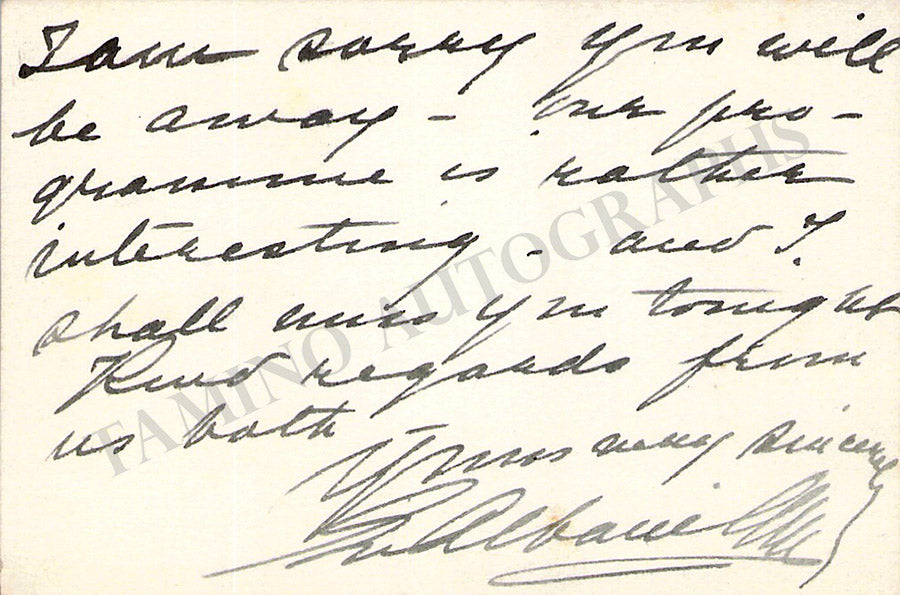 I am sorry you will
be away - our pro-
gramme is rather
interesting - and I
shall miss you tonight
Kind regards from
us both
Yours very sincerely
Albani
TAMINO AUTOGRAPHS